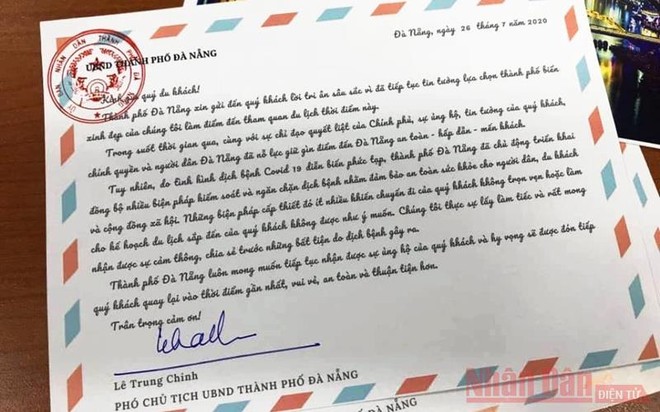 Đà Nẵng, ngày 26 tháng 7 năm 2020
UBND THÀNH PHỐ ĐÀ NẴNG
Kính gửi quý du khách!
Thành phố Đà Nẵng xin gửi đến quý khách lời tri ân sâu sắc vì đã tiếp tục tin tưởng lựa chọn thành phố biển
xinh đẹp của chúng tôi làm điểm đến tham quan du lịch thời điểm này.
Trong suốt thời gian qua, cùng với sự chỉ đạo quyết liệt của Chính phủ, sự ủng hộ, tin tưởng của quý khách,
chính quyền và người dân Đà Nẵng đã nỗ lực giữ gìn điểm đến Đà Nẵng an toàn - hấp dẫn - mến khách.
Tuy nhiên, do tình hình dịch bệnh Covid 19 diễn biến phức tạp, thành phố Đà Nẵng đã chủ động triển khai
đồng bộ nhiều biện pháp kiểm soát và ngăn chặn dịch bệnh nhằm đảm bảo an toàn sức khỏe cho người dân, du khách
và cộng đồng xã hội. Những biện pháp cấp thiết đó ít nhiều khiến chuyến đi của quý khách không trọn vẹn hoặc làm
cho kế hoạch du lịch sắp đến của quý khách không được như ý muốn. Chúng tôi thực sự lấy làm tiếc và rất mong
nhận được sự cảm thông, chia sẻ trước những bất tiện do dịch bệnh gây ra.
Thành phố Đà Nẵng luôn mong muốn tiếp tục nhận được sự ủng hộ của quý khách và hy vọng sẽ được đón tiếp
quý khách quay lại vào thời điểm gần nhất, vui vẻ, an toàn và thuận tiện hơn.
Trân trọng cảm ơn!
Lê Trung Chinh
PHÓ CHỦ TỊCH UBND THÀNH PHỐ ĐÀ NẴNG
PHỐ ĐÀ NẴNG
Nhân Dân
ĐIỆN TỬ